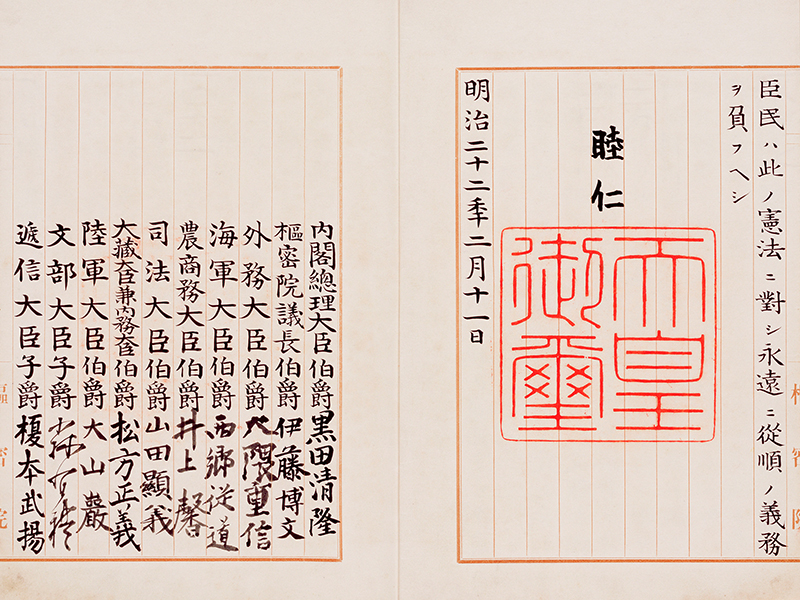 臣民ハ此ノ憲法ニ對シ永遠ニ從順ノ義務
ヲ負フヘシ
睦仁
天皇
御璽
明治二十二秊二月十一日
内閣總理大臣伯爵黒田清隆
樞密院議長伯爵伊藤博文
外務大臣伯爵大隈重信
海軍大臣伯爵西郷従道
農商務大臣伯爵井上馨
司法大臣伯爵山田顯義
大藏大臣兼内務大臣伯爵松方正義
陸軍大臣伯爵大山巖
文部大臣子爵森有禮
遞信大臣子爵榎本武揚